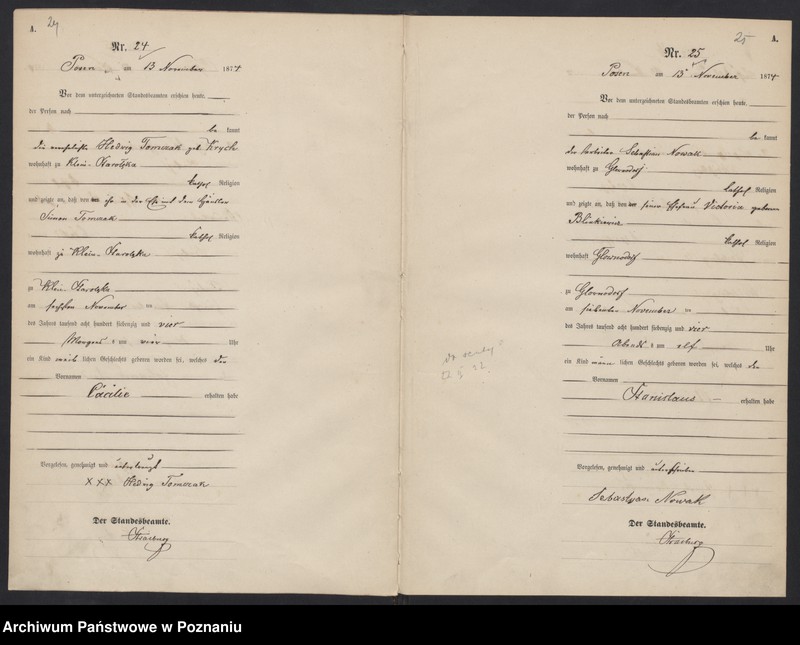 A. 24
Nr. 24
Posen am 13 November 1874
Vor dem unterzeichneten Standesbeamten erschien heute
der Person nach
be kannt
die verehelichte Hedwig Tomczak geb. Krych
wohnhaft zu Klein-Starolęka
kathol Religion
und zeigte an, daß von ihr in der Ehe mit dem Häusler
Simon Tomczak
kathol Religion
wohnhaft zu Klein-Starolęka
zu Klein-Starolęka
am sechsten November
des Jahres tausend acht hundert siebenzig und vier
Morgens um vier Uhr
ein Kind weib lichen Geschlechts geboren worden sei, welches den
Vornamen
Cäcilie erhalten habe
Vorgelesen, genehmigt und
XXX Hedwig Tomczak
Der Standesbeamte.
25 A.
Nr. 25
Posen am 13 November 1874
Vor dem unterzeichneten Standesbeamten erschien heute
der Person nach
be kannt
der Arbeiter Sebastian Nowak
wohnhaft zu Glownodorf
kathol Religion
und zeigte an, daß von seiner Ehefrau Victoria geborenen
kathol Religion
wohnhaft Glownodorf
zu Glownodorf
am siebenten November
des Jahres tausend acht hundert siebenzig und vier
Abends um elf Uhr
ein Kind männ lichen Geschlechts geboren worden sei, welches den
Vornamen
Stanislaus erhalten habe
Vorgelesen, genehmigt und unterschrieben
Sebastyan Nowak
Der Standesbeamte.
Archiwum Państwowe w Poznaniu